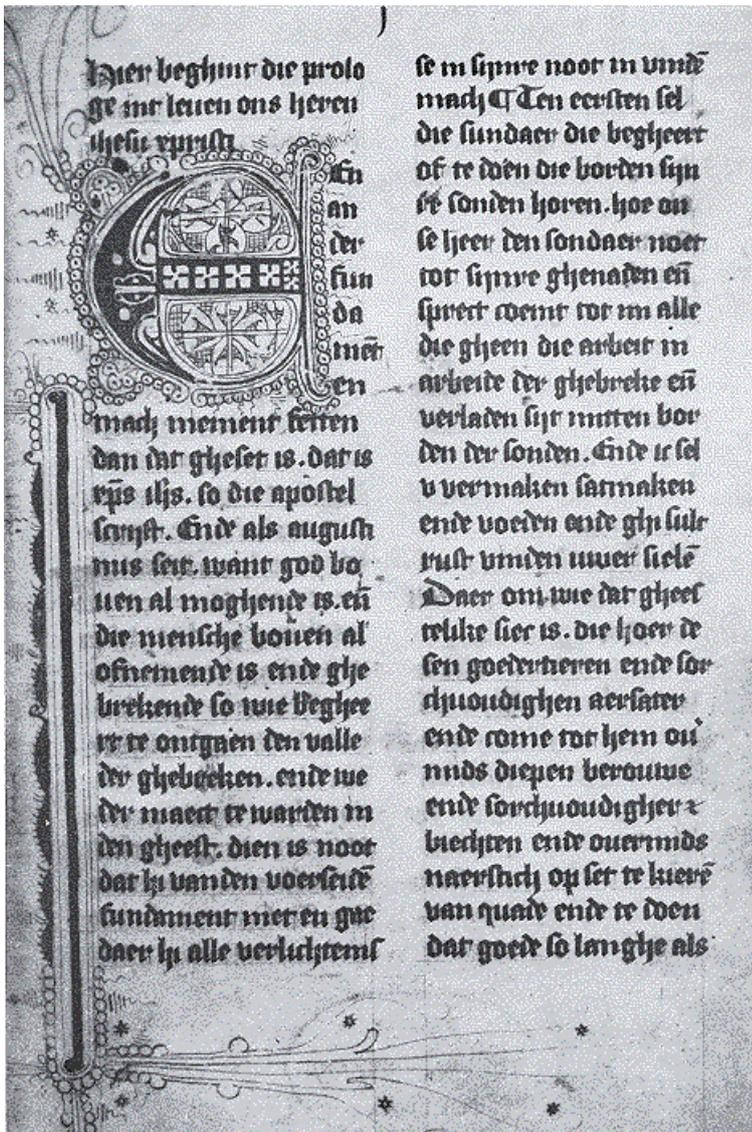 Hier beghint die prolo
ge int leuen ons heren
ihesu xpristi
En
an
der
fun
da
mēt
en
mach niement setten
dan dat gheset is. dat is
xp̄s ih̄s. so die apostel
scrijft. Ende als augusti
nus seit. want god bo
uen al moghende is. eñ
die mensche bouen al
ofnemende is ende ghe
brekende so wie beghee
rt te ontgaen den valle
der ghebreken. ende we
der maect te warden in
den gheest. dien is noot
dat hi vanden voerseidē
fundament niet en gae
daer hi alle verlichtenis
se in sijnre noot in vindē
mach ¶ Ten eersten sel
die sundaer die begheert
of te doen die borden sijn
re sonden horen. hoe on
se heer den sondaer noet
tot sijnre ghenaden eñ
sprect coemt tot mi alle
die gheen die arbeit in
arbeide der ghebreke eñ
verladen sijt mitten bor
den der sonden. Ende ic sel
v vermaken satmaken
ende voeden ende ghi sult
rust vinden uwer sielē
Daer om wie dat ghees
telike siec is. die hoer de
sen goedertieren ende sor
chuoudighen aersater
ende come tot hem ou̓
mids diepen berouwe
ende sorchuoudigher
biechten ende ouermids
naerstich op set te kierē
van quade ende te doen
dat goede so langhe als